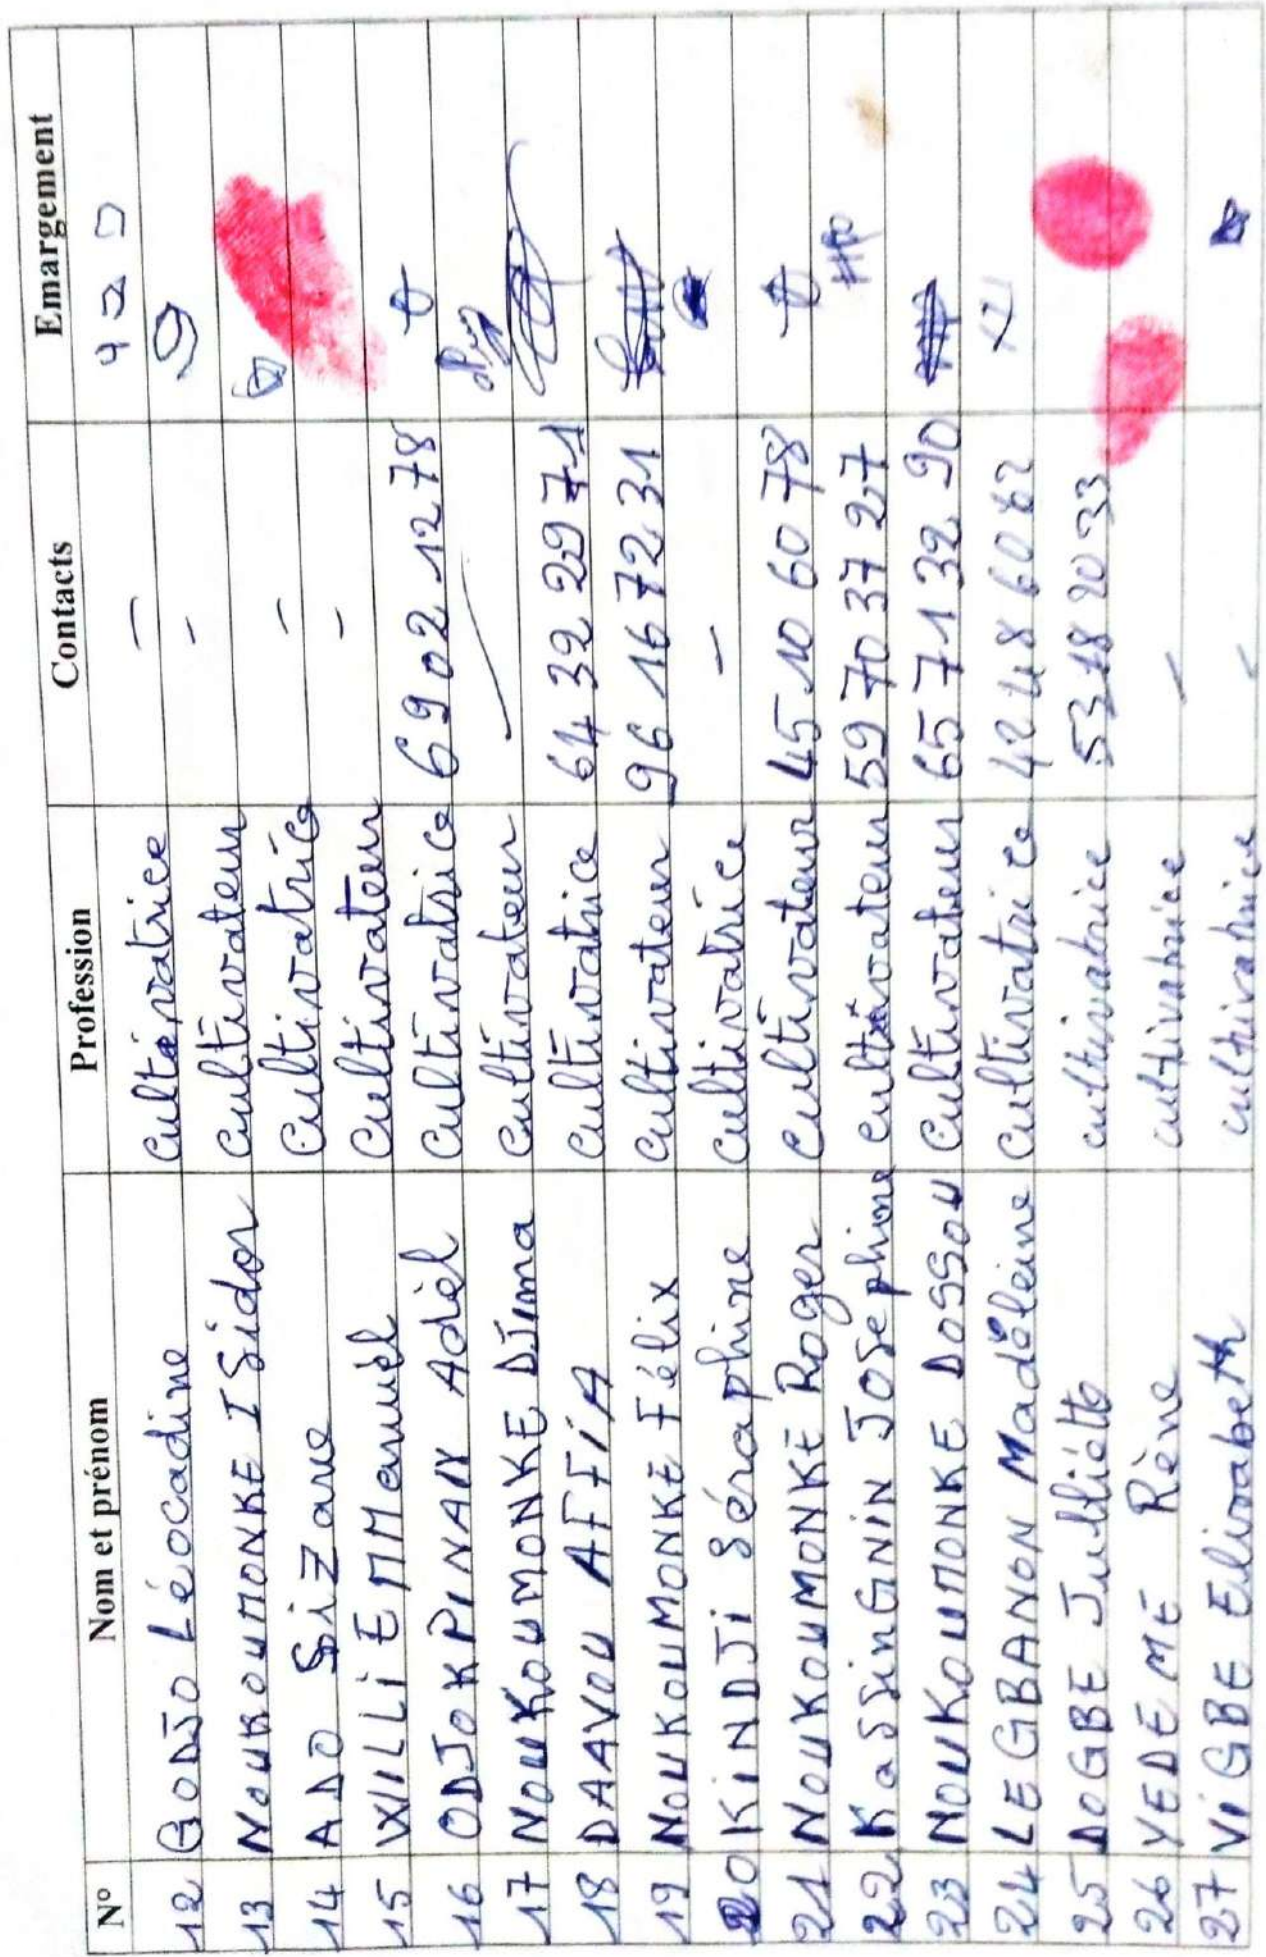 N° Nom et prénom Profession Contacts Emargement
12 GODJO Léocadine Cultivatrice -
13 NOUKOUMONKE ISidor Cultivateur -
14 ADO SiZane Cultivatrice -
15 WILLIEMMamuel Cultivateur -
16 ODJOKPINAN Adèl Cultivatrice 69 02 12 78
17 NOUKOUMONKE DJima Cultivateur
18 DAAVOU AFFiA Cultivatrice 64 32 29 71
19 NOUKOUMONKE Félix Cultivateur 96 16 72 31
20 KiNDJi Séraphine Cultivatrice -
21 NOUKOUMONKE Roger Cultivateur 45 10 60 78
22 KaSSinGNiN JOSephine cultivateur 59 70 37 27
23 NOUKOUMONKE DOSSOU Cultivateur 65 71 32 90
24 LEGBANON Madéleine Cultivatrice 42 48 60 62
25 DOGBE Julliétte cultivatrice 53 18 20 33
26 YEDEME Rène cultivatrice -
27 ViGBE Elisabeth cultivatrice -